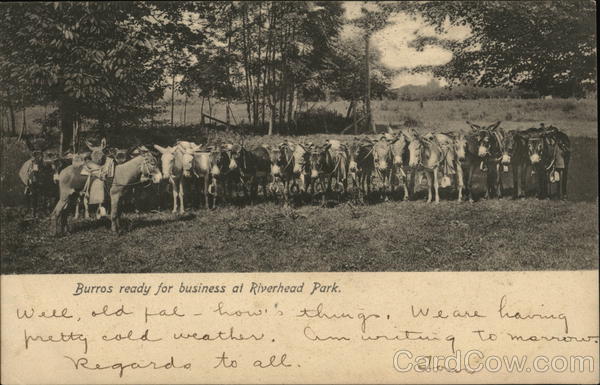 Burros ready for business at Riverhead Park.
Well, old pal - how's things. We are having
pretty cold weather. Am writing to morrow.
Regards to all.
CardCow.com